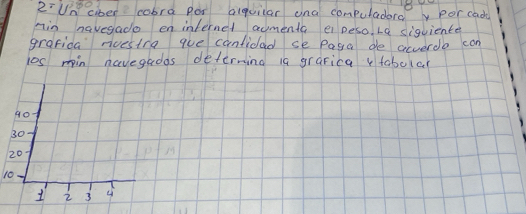 2- Un ciber cobra por alquilar una computadora y por cada
min navegado en internet aumenta el peso. La siguiente
grafica muestra que cantidad se paga de acuerdo con
los min navegados determina la grafica y tabular
40
30
20
10
1 2 3 4